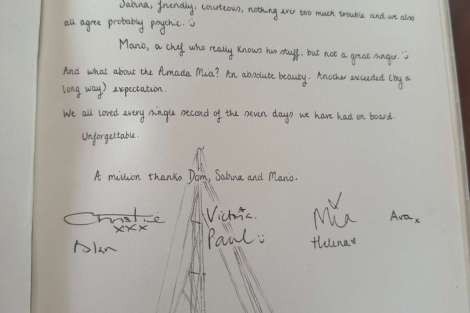 Sabina, friendly, courteous, nothing ever too much trouble and we also
all agree probably psychic.
Mano, a chef who really knows his stuff, but not a great singer.
And what about the Amada Mia? An absolute beauty. Another exceeded (by a
long way) expectation.
We all loved every single second of the seven days we have had on board.
Unforgettable.
A million thanks Dom, Sabina and Mano.
Christie Victoria. Mia Ava x
xxx
Alan Paul Helena x